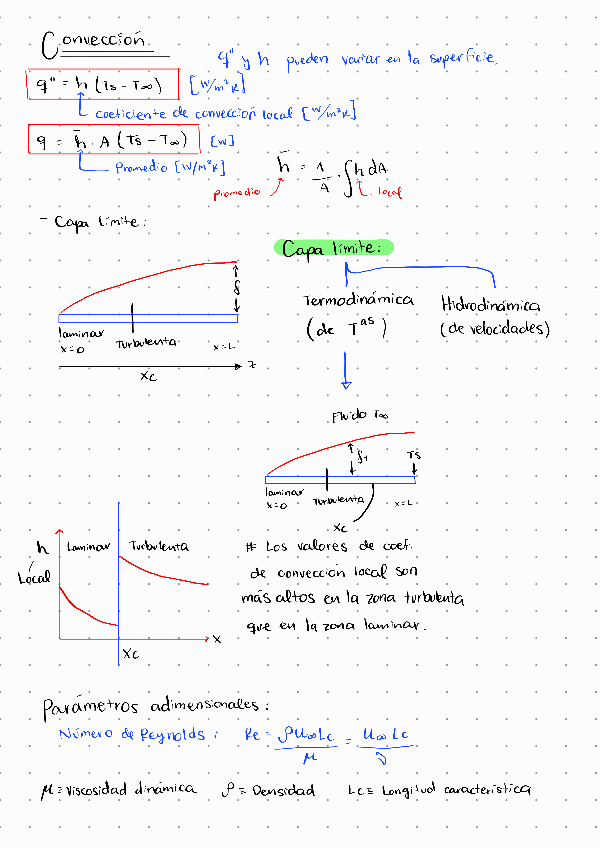 Convección.
q" y h pueden variar en la superficie.
q" = h (Ts - T∞) [W/m²K]
coeficiente de convección local [W/m²K]
q = h̄ . A (Ts - T∞) [W]
Promedio [W/m²K]
h̄ = 1/A . ∫ h dA
promedio local
- Capa límite:
Capa límite:
δ
laminar Turbulenta
x=0 x=L
xc
Termodinámica Hidrodinámica
(de Tᵃˢ) (de velocidades)
Fluido T∞
δT Ts
laminar Turbulenta
x=0 x=L
xc
h Laminar Turbulenta
Local
x
xc
# Los valores de coef.
de convección local son
más altos en la zona turbulenta
que en la zona laminar.
Parámetros adimensionales:
Número de Reynolds: Re = ρU∞Lc/μ = U∞Lc/ν
μ = Viscosidad dinámica ρ = Densidad Lc = Longitud característica